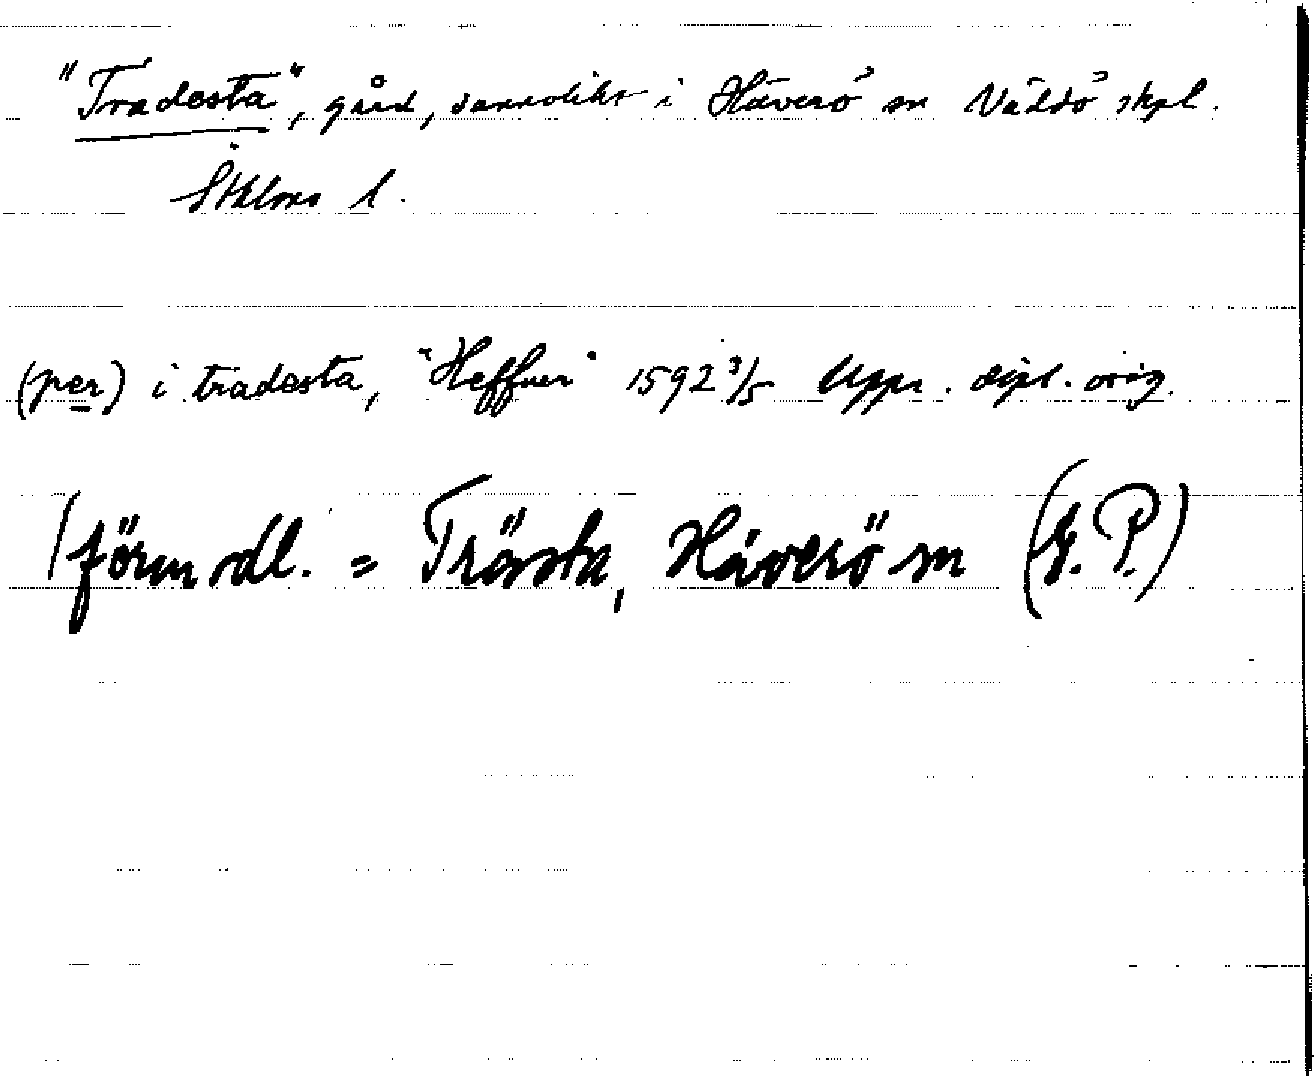 "Tradesta", gård, sannolikt i Häverö sn Väddö skpl.
Sthlms l.
(per) i tradesta, "Heffuer" 1592 3/5 Upps. dipl. orig.
/förmodl. = Trästa, Häverö sn (G. P.)